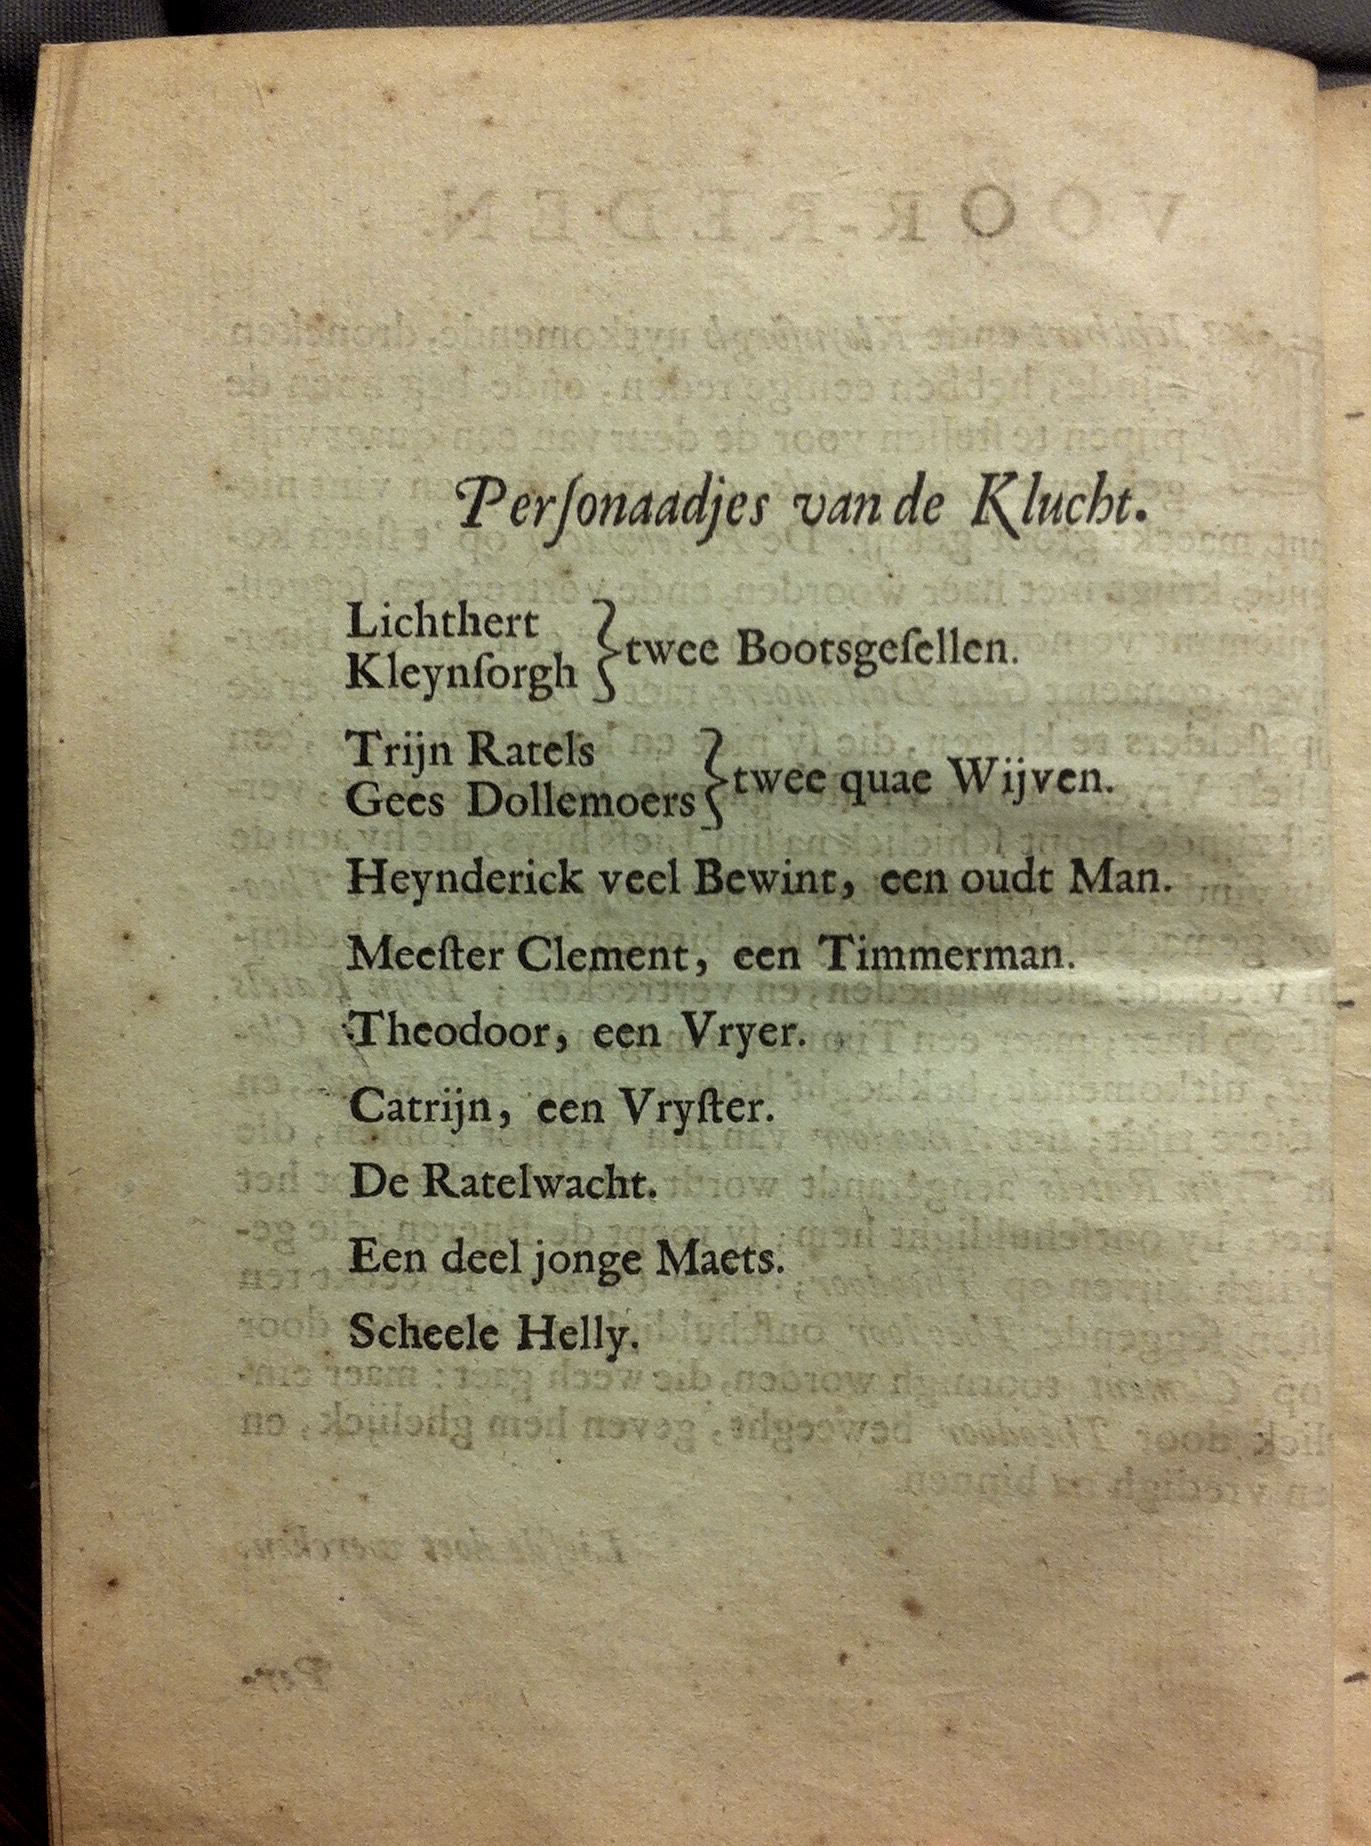 Perſonaadjes van de Klucht.
Lichthert
Kleynſorgh } twee Bootsgeſellen.
Trijn Ratels
Gees Dollemoers } twee quae Wijven.
Heynderick veel Bewint, een oudt Man.
Meeſter Clement, een Timmerman.
Theodoor, een Vryer.
Catrijn, een Vryſter.
De Ratelwacht.
Een deel jonge Maets.
Scheele Helly.